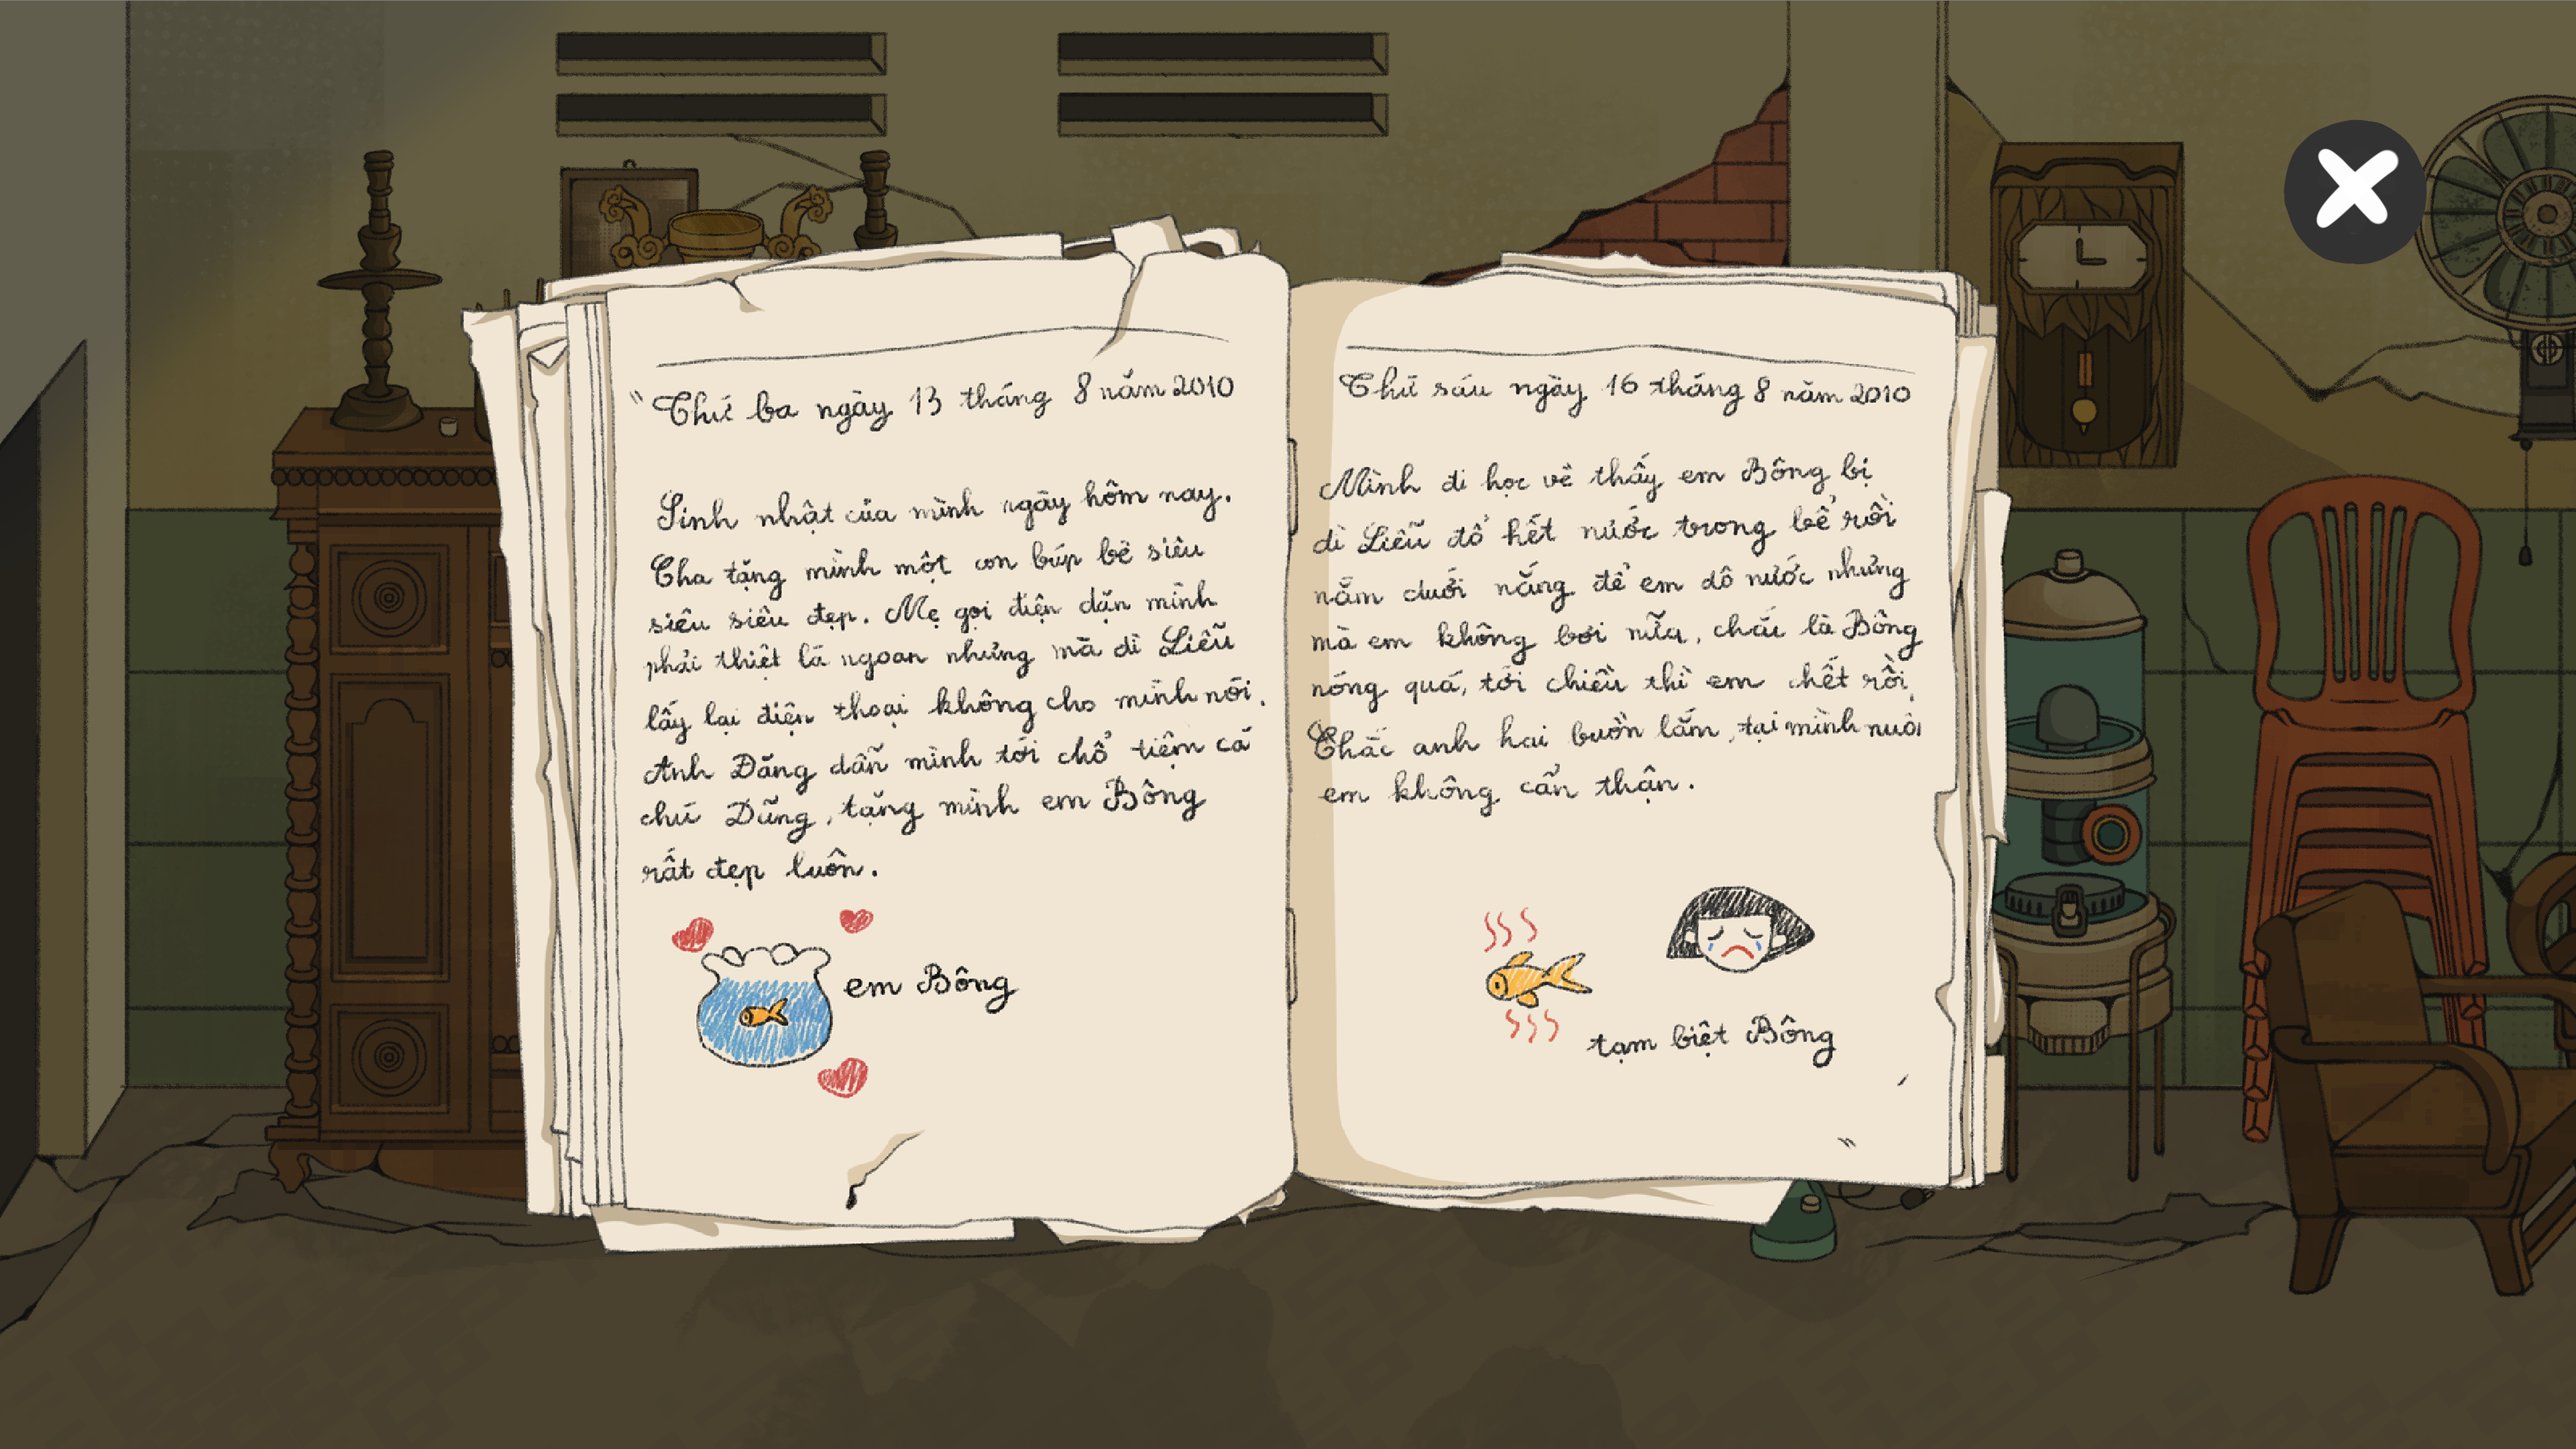 "Thứ ba ngày 13 tháng 8 năm 2010
Sinh nhật của mình ngày hôm nay.
Cha tặng mình một con búp bê siêu
siêu siêu đẹp. Mẹ gọi điện dặn mình
phải thiệt là ngoan nhưng mà dì Liễu
lấy lại điện thoại không cho mình nói.
Anh Đăng dẫn mình tới chỗ tiệm cá
chú Dũng, tặng mình em Bông
rất đẹp luôn.
em Bông
Thứ sáu ngày 16 tháng 8 năm 2010
Mình đi học về thấy em Bông bị
dì Liễu đổ hết nước trong bể rồi
nằm dưới nắng để em dô nước nhưng
mà em không bơi nữa, chắc là Bông
nóng quá, tới chiều thì em chết rồi.
Chắc anh hai buồn lắm, tại mình nuôi
em không cẩn thận.
tạm biệt Bông
"